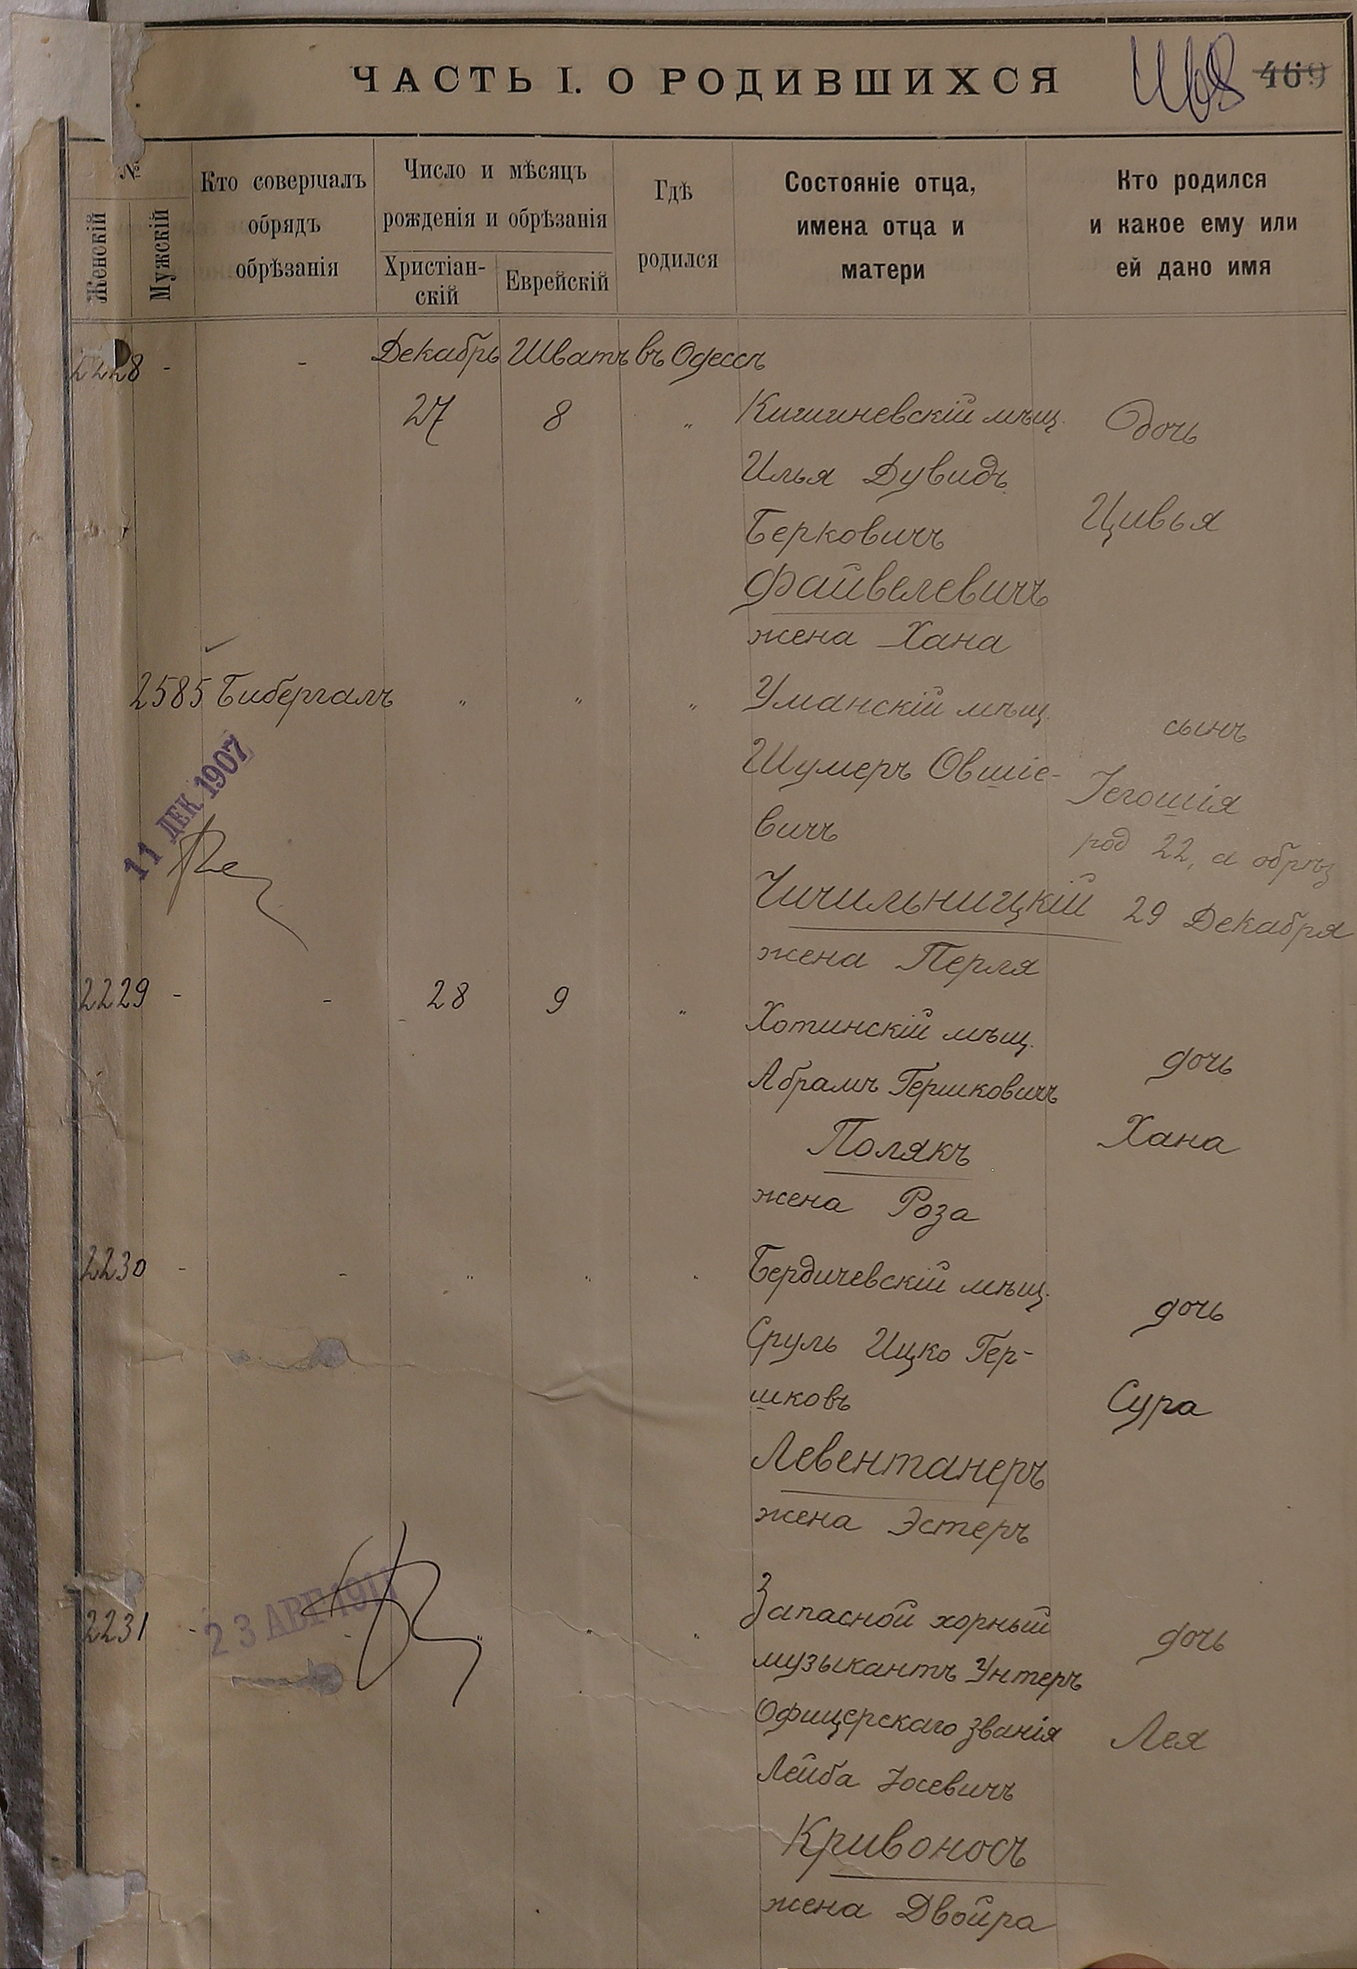 ЧАСТЬ I. О РОДИВШИХСЯ
469
№
Женскій
Мужскій
Кто совершалъ
обрядъ
обрѣзанія
Число и мѣсяцъ
рожденія и обрѣзанія
Христіан-
скій
Еврейскій
Гдѣ
родился
Состояніе отца,
имена отца и
матери
Кто родился
и какое ему или
ей дано имя
2228 - - Декабрь Шватъ въ Одессѣ
27 8 „ Кишиневскій мѣщ. дочь
Илья Дувидъ
Берковичъ Цивья
Файвелевичъ
жена Хана
2585 Бибергалъ „ „ „ Уманскій мѣщ. сынъ
Шумеръ Овшіе- Іегошія
вичъ род 22, а обрѣз
Чичильницкій 29 Декабря
жена Перля
11 ДЕК 1907
2229 - - 28 9 „ Хотинскій мѣщ. дочь
Абрамъ Гершковичъ
Полякъ Хана
жена Роза
2230 - - „ „ „ Бердичевскій мѣщ. дочь
Сруль Ицко Гер-
шковъ Сура
Левентанеръ
жена Эстеръ
2231 - - „ „ „ Запасной хорный дочь
23 АВГ 1911
музыкантъ Унтеръ
Офицерскаго званія Лея
Лейба Іосевичъ
Кривоносъ
жена Двойра